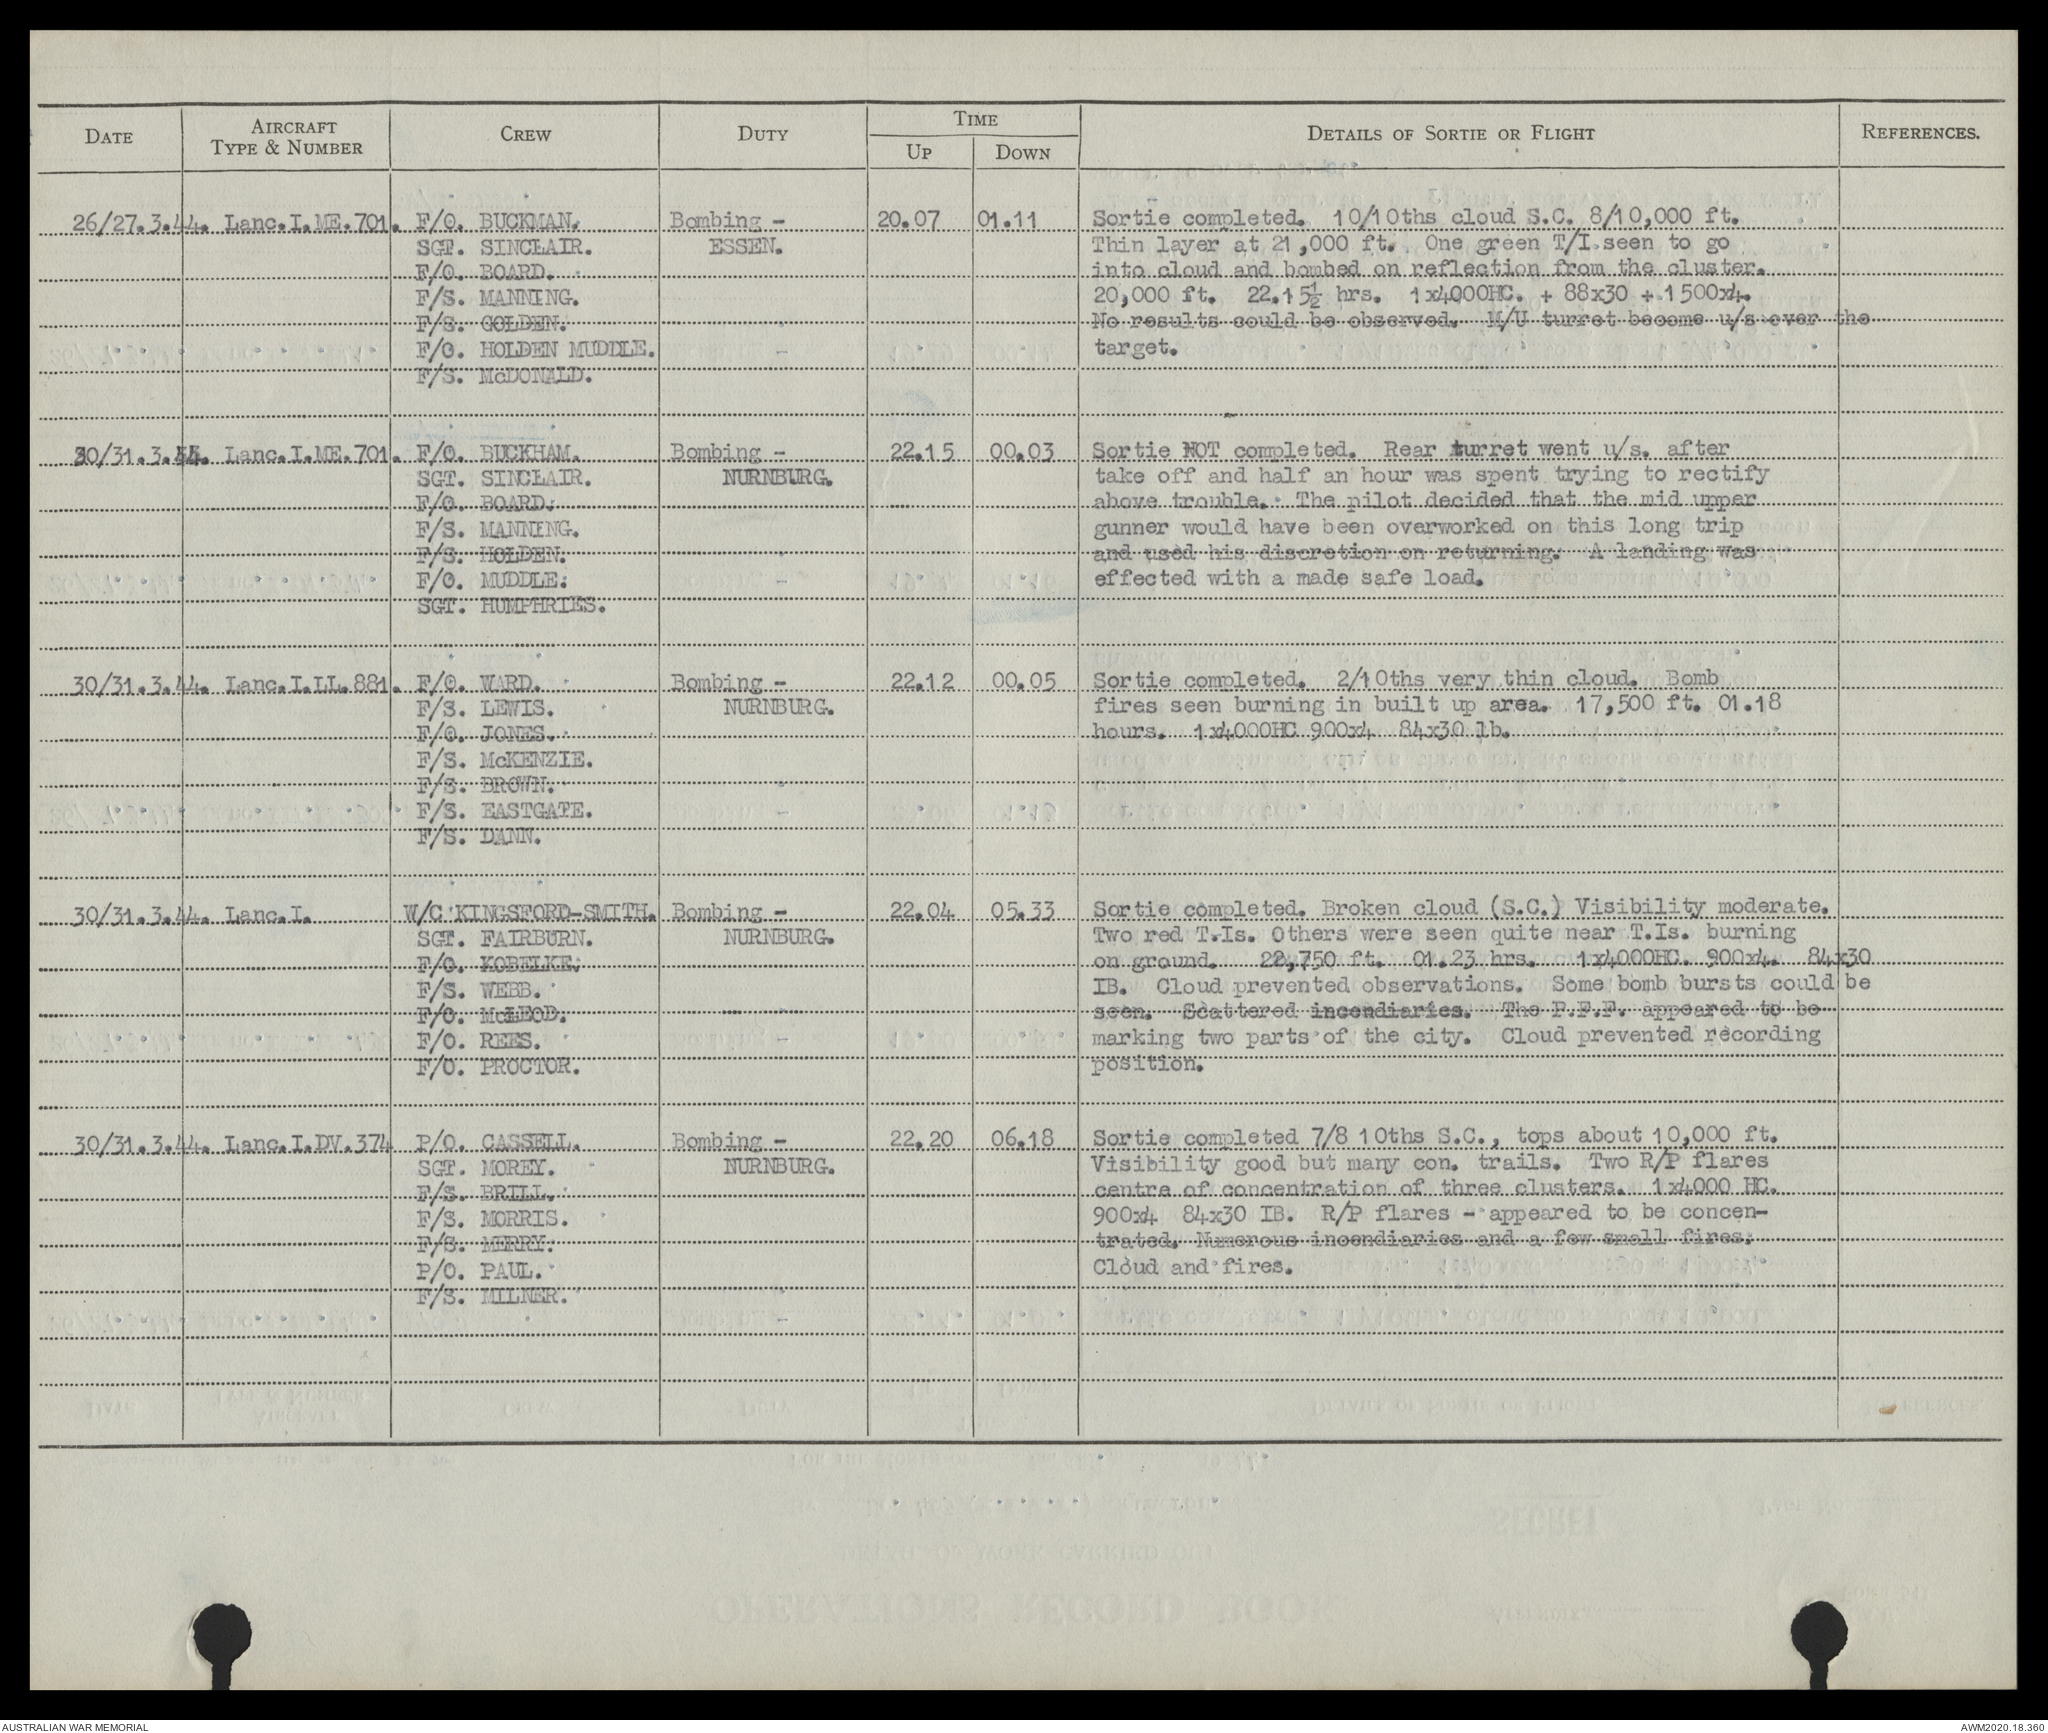 DATE AIRCRAFT TYPE & NUMBER CREW DUTY TIME UP DOWN DETAILS OF SORTIE OR FLIGHT REFERENCES.
26/27.3.44. Lanc.I.ME.701. F/O. BUCKMAN. Bombing - 20.07 01.11 Sortie completed. 10/10ths cloud S.C. 8/10,000 ft.
SGT. SINCLAIR. ESSEN. Thin layer at 21,000 ft. One green T/I seen to go
F/O. BOARD. into cloud and bombed on reflection from the cluster.
F/S. MANNING. 20,000 ft. 22.15½ hrs. 1x4000HC. + 88x30 + 1500x4.
F/S. GOLDEN. No results could be observed. M/U turret become u/s over the
F/O. HOLDEN MUDDLE. target.
F/S. McDONALD.
30/31.3.44. Lanc.I.ME.701. F/O. BUCKHAM. Bombing - 22.15 00.03 Sortie NOT completed. Rear turret went u/s. after
SGT. SINCLAIR. NURNBURG. take off and half an hour was spent trying to rectify
F/O. BOARD. above trouble. The pilot decided that the mid upper
F/S. MANNING. gunner would have been overworked on this long trip
F/S. HOLDEN. and used his discretion on returning. A landing was
F/O. MUDDLE. effected with a made safe load.
SGT. HUMPHRIES.
30/31.3.44. Lanc.I.LL.881. F/O. WARD. Bombing - 22.12 00.05 Sortie completed. 2/10ths very thin cloud. Bomb
F/S. LEWIS. NURNBURG. fires seen burning in built up area. 17,500 ft. 01.18
F/O. JONES. hours. 1x4000HC 900x4 84x30 lb.
F/S. McKENZIE.
F/S. BROWN.
F/S. EASTGATE.
F/S. DANN.
30/31.3.44. Lanc.I. W/C KINGSFORD-SMITH. Bombing - 22.04 05.33 Sortie completed. Broken cloud (S.C.) Visibility moderate.
SGT. FAIRBURN. NURNBURG. Two red T.Is. Others were seen quite near T.Is. burning
F/O. KOBELKE. on ground. 22,750 ft. 01.23 hrs. 1x4000HC. 900x4. 84x30
F/S. WEBB. IB. Cloud prevented observations. Some bomb bursts could be
F/O. McLEOD. seen. Scattered incendiaries. The P.F.F. appeared to be
F/O. REES. marking two parts of the city. Cloud prevented recording
F/O. PROCTOR. position.
30/31.3.44. Lanc.I.DV.374 P/O. CASSELL. Bombing - 22.20 06.18 Sortie completed 7/8 10ths S.C., tops about 10,000 ft.
SGT. MOREY. NURNBURG. Visibility good but many con. trails. Two R/P flares
F/S. BRILL. centre of concentration of three clusters. 1x4000 HC.
F/S. MORRIS. 900x4 84x30 IB. R/P flares - appeared to be concen-
F/S. MERRY. trated. Numerous incendiaries and a few small fires.
P/O. PAUL. Cloud and fires.
F/S. MILNER.
AUSTRALIAN WAR MEMORIAL AWM2020.18.360